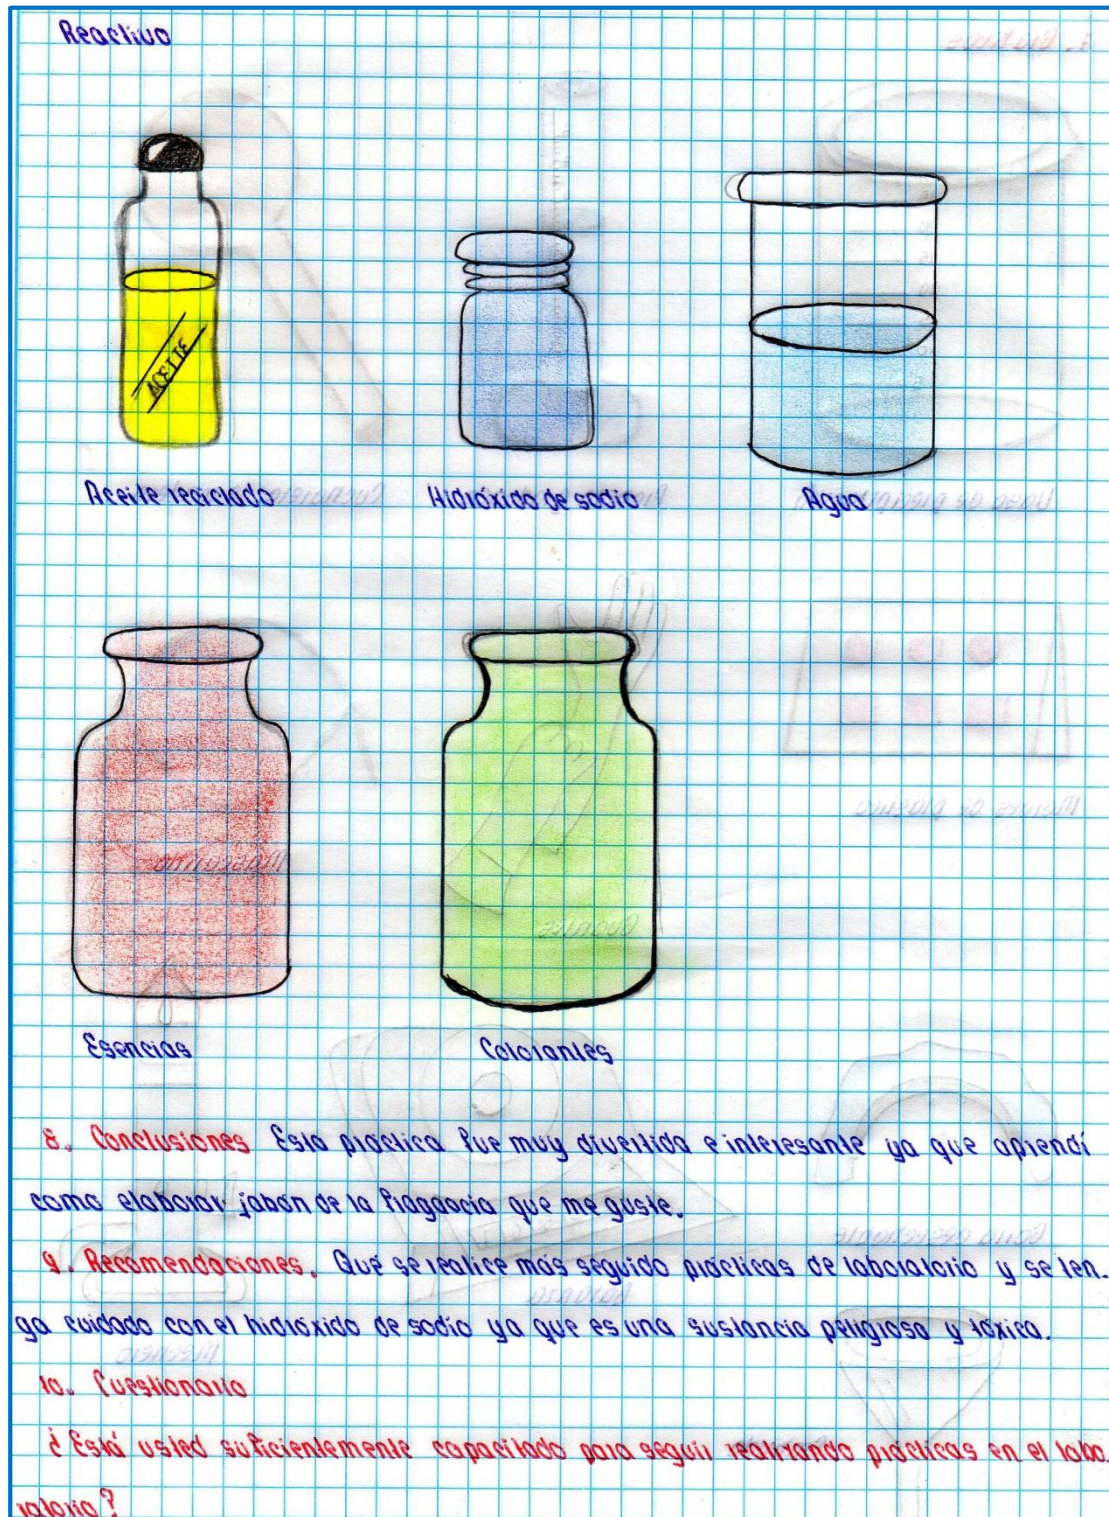 Reactivo
ACEITE
Aceite reciclado
Hidróxido de sodio
Agua
Esencias
Colorantes
8. Conclusiones Esta práctica fue muy divertida e interesante ya que aprendí
como elaborar jabón de la fragancia que me guste.
9. Recomendaciones. Qué se realice más seguido prácticas de laboratorio y se ten-
ga cuidado con el hidróxido de sodio ya que es una sustancia peligrosa y tóxica.
10. Cuestionario
¿Está usted suficientemente capacitado para seguir realizando prácticas en el labo-
ratorio?